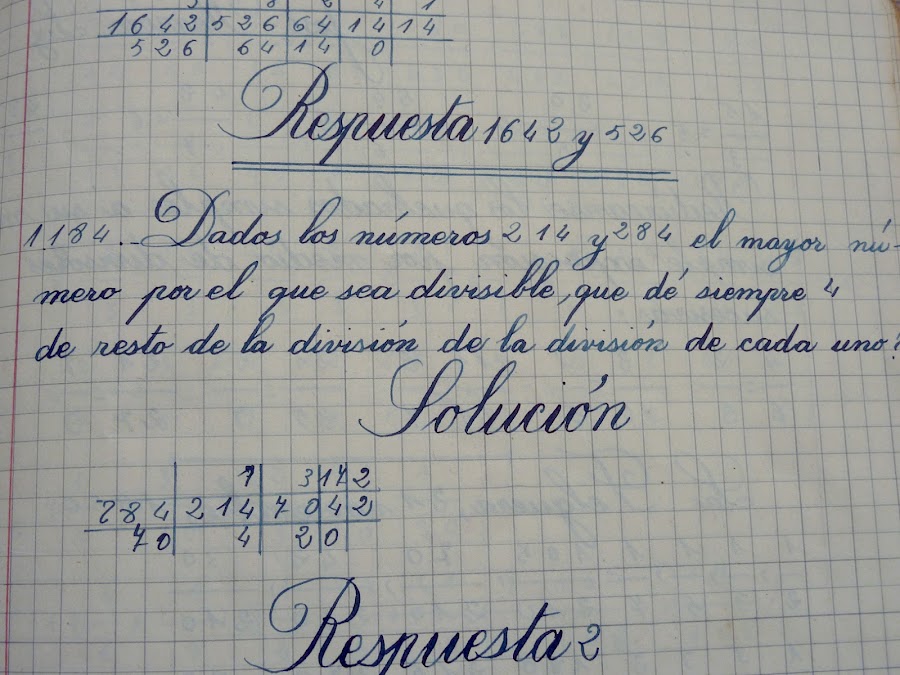 1642 526 64 14 14
526 64 14 0
Respuesta 1642 y 526
1184.- Dados los números 214 y 284 el mayor nú-
mero por el que sea divisible, que dé siempre 4
de resto de la división de la división de cada uno?
Solución
1 3 17 2
284 214 70 4 2
70 4 2 0
Respuesta 2